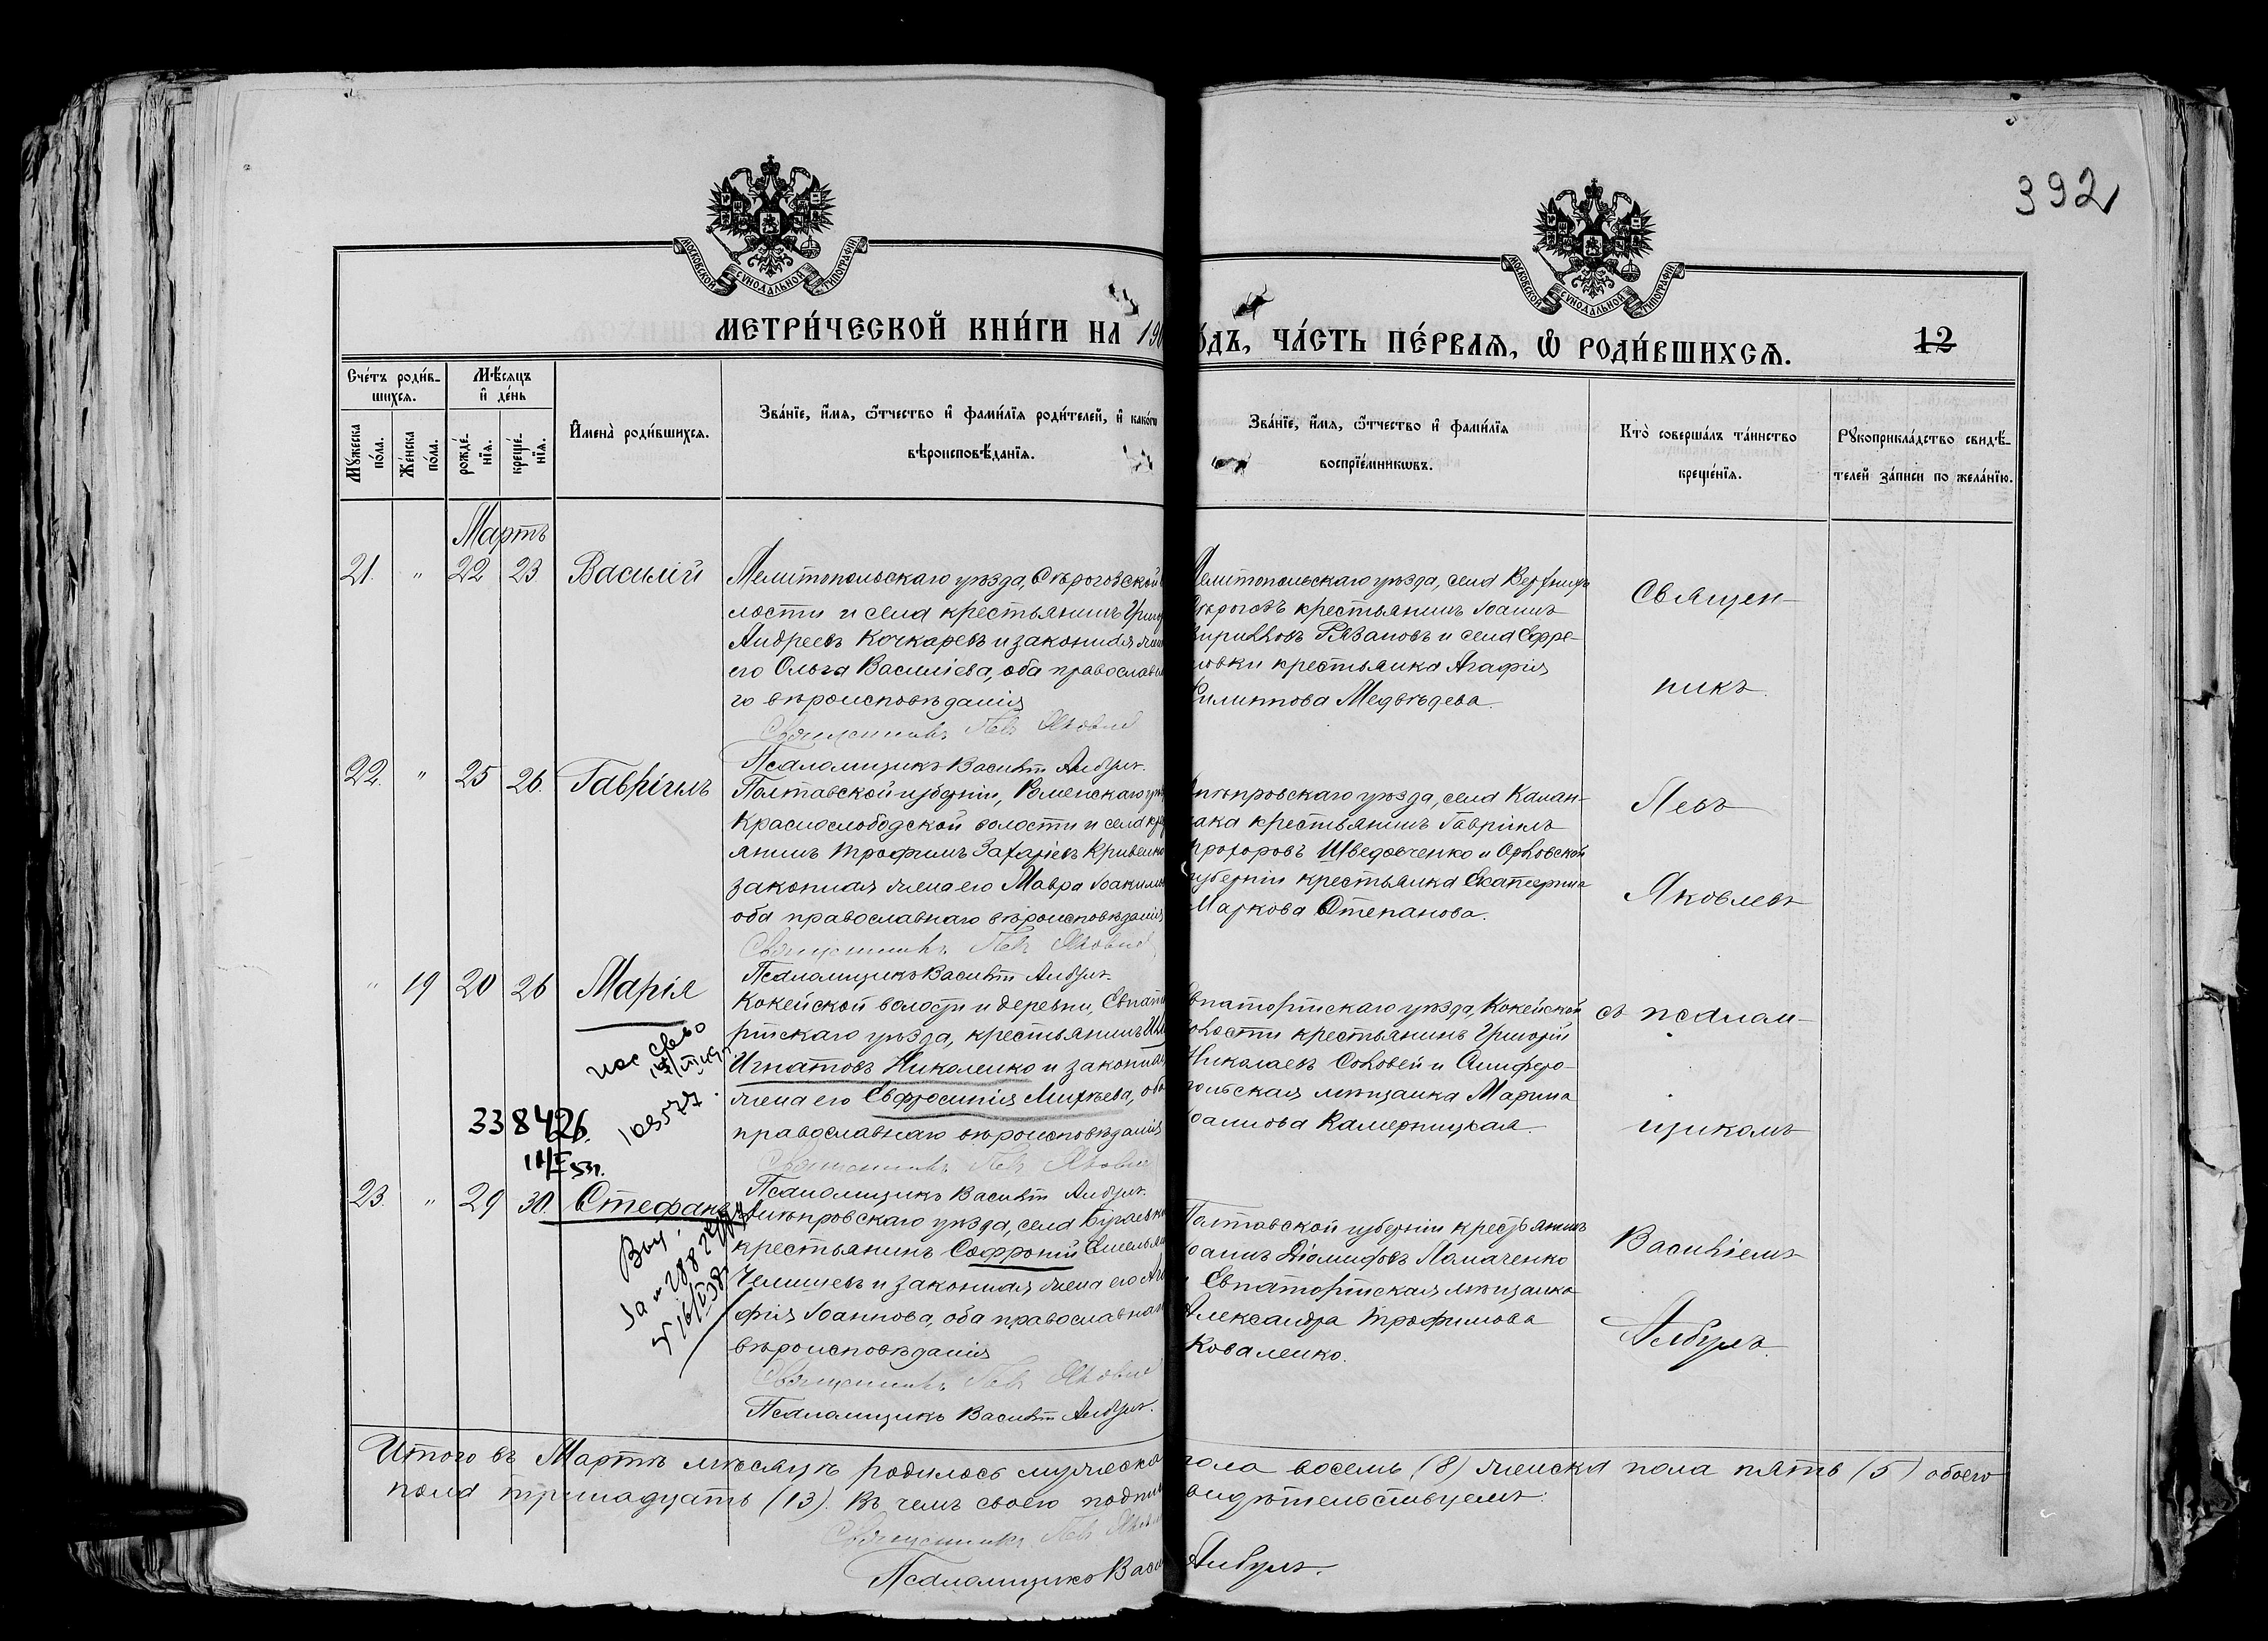 392
МОСКОВСКОЙ СУНОДАЛЬНОЙ ТИПОГРАФІИ
МОСКОВСКОЙ СУНОДАЛЬНОЙ ТИПОГРАФІИ
МЕТРИ́ЧЕСКОЙ КНИ́ГИ НА 190
О́ДЪ, ЧА́СТЬ ПЕ́РВАѦ, Ѡ РОДИ́ВШИХСѦ.
12
Сче́тъ роди́в-
шихсѧ.
Мѣ́сѧцъ
и҆ де́нь
Мꙋ́жеска
по́ла.
Же́нска
по́ла.
рожде́-
нїѧ.
креще́-
нїѧ.
И҆мена̀ роди́вшихсѧ.
Зва́нїе, и҆́мѧ, ѻ҆́тчество и҆ фами́лїѧ роди́телей, и҆ како́гѡ
вѣроисповѣ́данїѧ.
Зва́нїе, и҆́мѧ, ѻ҆́тчество и҆ фами́лїѧ
воспрїе́мникѡвъ.
Кто̀ соверша́лъ та́инство
креще́нїѧ.
Рꙋкоприкла́дство свидѣ́-
телей за́писи по жела́нїю.
Мартъ
21. " 22 23 Василій
Мелитопольскаго уѣзда, Сѣрогозской
лости и села крестьянинъ
Андреевъ Кочкаревъ и законная
его Ольга Василіева, оба православна
го вѣроисповѣданія
Священникъ Левъ Яковлевъ
Псаломщикъ Василій Албулъ.
Мелитопольскаго уѣзда, села Верхнихъ
Сѣрогозъ крестьянинъ Іоаннъ
Кирилловъ Рязановъ и села Ефре-
мовки крестьянка Агафія
Филиппова Медвѣдева.
Священ-
никъ
22. " 25 26. Гавріилъ
Полтавской губерніи, Роменскаго
Краснослободской волости и села
янинъ Трофимъ Захаріевъ Кривенко
законная жена его Мавра Іоакимова
оба православнаго вѣроисповѣданія
Священникъ Левъ Яковлевъ
Псаломщикъ Василій Албулъ.
Днѣпровскаго уѣзда, села Калан-
чака крестьянинъ Гавріилъ
Прохоровъ Шведовченко и Орловской
губерніи крестьянка Екатерина
Маркова Степанова.
Левъ
Яковлевъ
" 19 20 26 Марія
Кокейской волости и деревни, Евпато
рійскаго уѣзда, крестьянинъ
Игнатовъ Николенко и законная
жена его Евфросинія Михѣева, оба
православнаго вѣроисповѣданія
Священникъ Левъ Яковлевъ
Псаломщикъ Василій Албулъ.
Евпаторійскаго уѣзда, Кокейской
волости крестьянинъ Григорій
Николаевъ Соловей и Симферо-
польская мѣщанка Марина
Іоаннова Камерницкая.
съ псалом-
щикомъ
103577.
338426.
23. " 29 30. Стефанъ
Днѣпровскаго уѣзда, села
крестьянинъ Софроній Емельян
Челышевъ и законная жена его Ага
фія Іоаннова, оба православнаго
вѣроисповѣданія
Священникъ Левъ Яковлевъ
Псаломщикъ Василій Албулъ.
Полтавской губерніи крестьянинъ
Іоаннъ Діомидовъ Ломаченко
и Евпаторійская мѣщанка
Александра Трофимова
Коваленко.
Василіемъ
Албулъ.
Итого въ Мартѣ мѣсяцѣ родилось мужеска пола восемь (8) женска пола пять (5) обоего
пола тринадцать (13). Въ чемъ своею подписью свидѣтельствуемъ:
Священникъ Левъ Яковлевъ
Псаломщикъ Василій Албулъ.